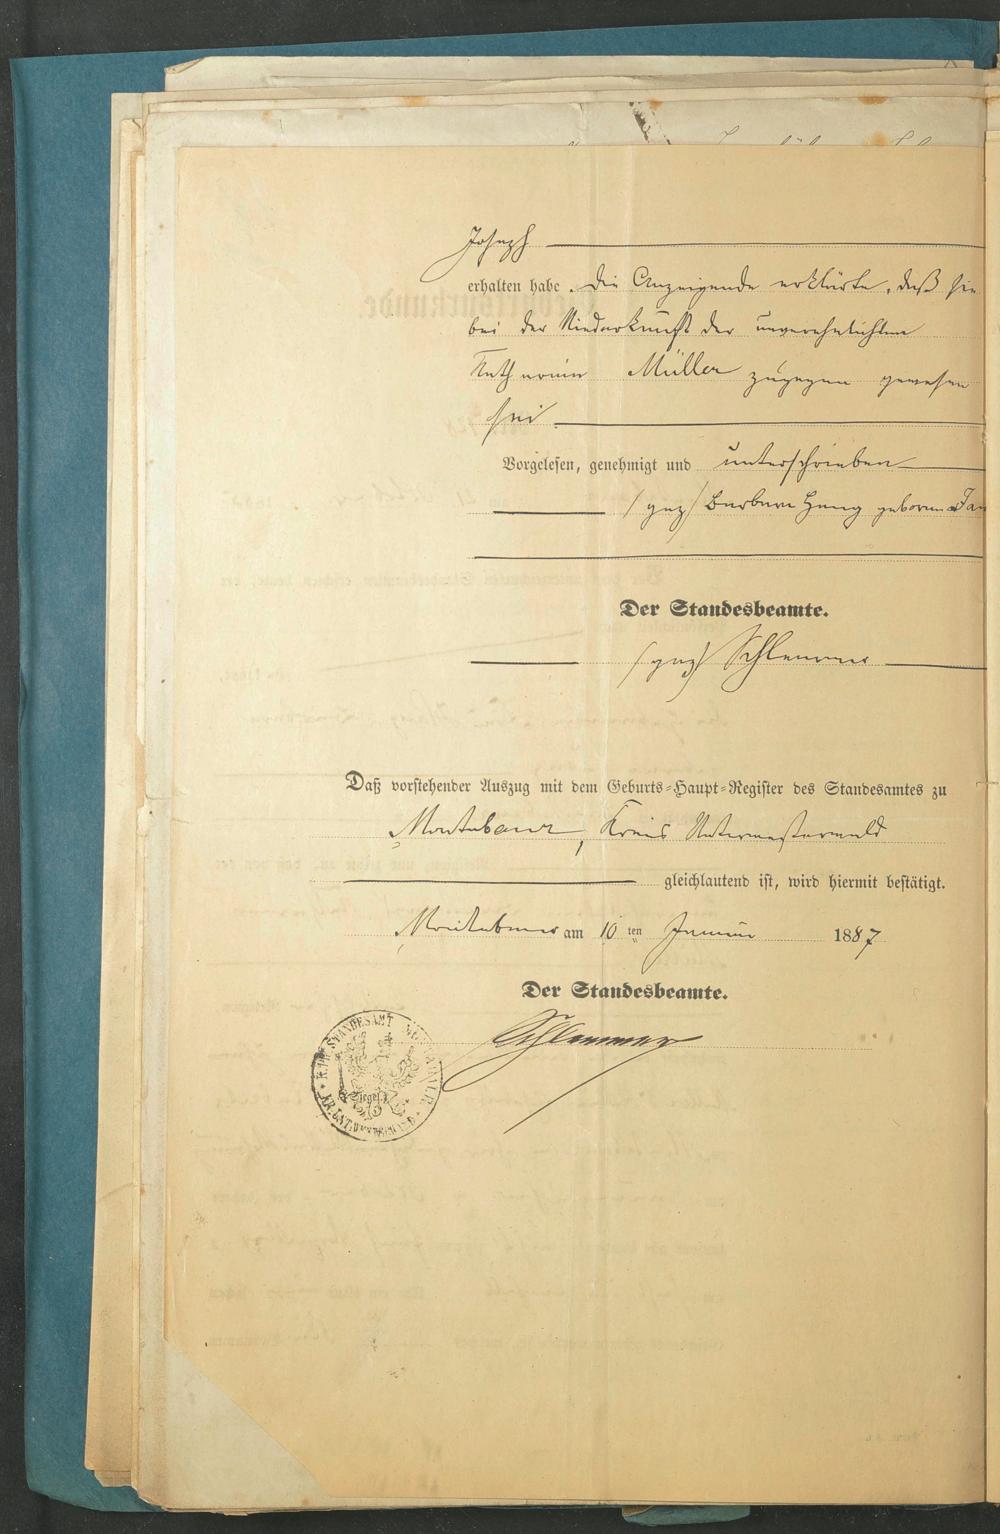 Joseph
erhalten habe. Die Anzeigende erklärte, daß sie
bei der Niederkunft der unverehelichten
Katharina Müller zugegen gewesen
sei.
Vorgelesen, genehmigt und unterschrieben
(gez) Barbara Haug geborene
Der Standesbeamte.
(gez) Schlemmer
Daß vorstehender Auszug mit dem Geburts-Haupt-Register des Standesamtes zu
Montabaur, Kreis Unterwesterwald
gleichlautend ist, wird hiermit bestätigt.
Montabaur am 10 ten Januar 1887
Der Standesbeamte.
Schlemmer
STANDESAMT
Siegel